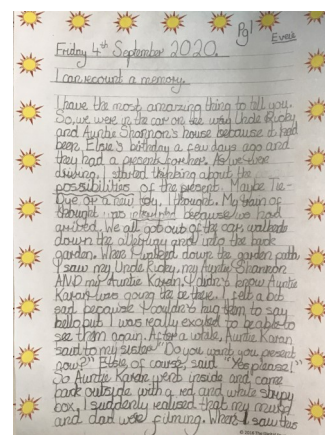 Pg 1
Everie
Friday 4th September 2020.
I can recount a memory.
I have the most amazing thing to tell you.
So, we were in the car on the way Uncle Ricky
and Auntie Shannon's house because it had
been Elsie's birthday a few days ago and
they had a present for her. As we were
driving, I started thinking about the
possibilities of the present. Maybe Tie-
Dye or a new toy, I thought. My train of
thought was intrupted because we had
arrived. We all got out of the car, walked
down the alleyway and into the back
garden. When I walked down the garden path,
I saw my Uncle Ricky, my Auntie Shannon
AND my Auntie Karan. I didn't know Auntie
Karan was going to be there. I felt a bit
sad because I couldn't hug them to say
hello but I was really excited to be able to
see them again. After a while, Auntie Karan
said to my sister "Do you want you present
now?" Elsie of course, said "Yes please!"
So Auntie Karan went inside and came
back outside with a red and white stripy
box. I suddenly realised that my mum
and dad were filming. When I saw this